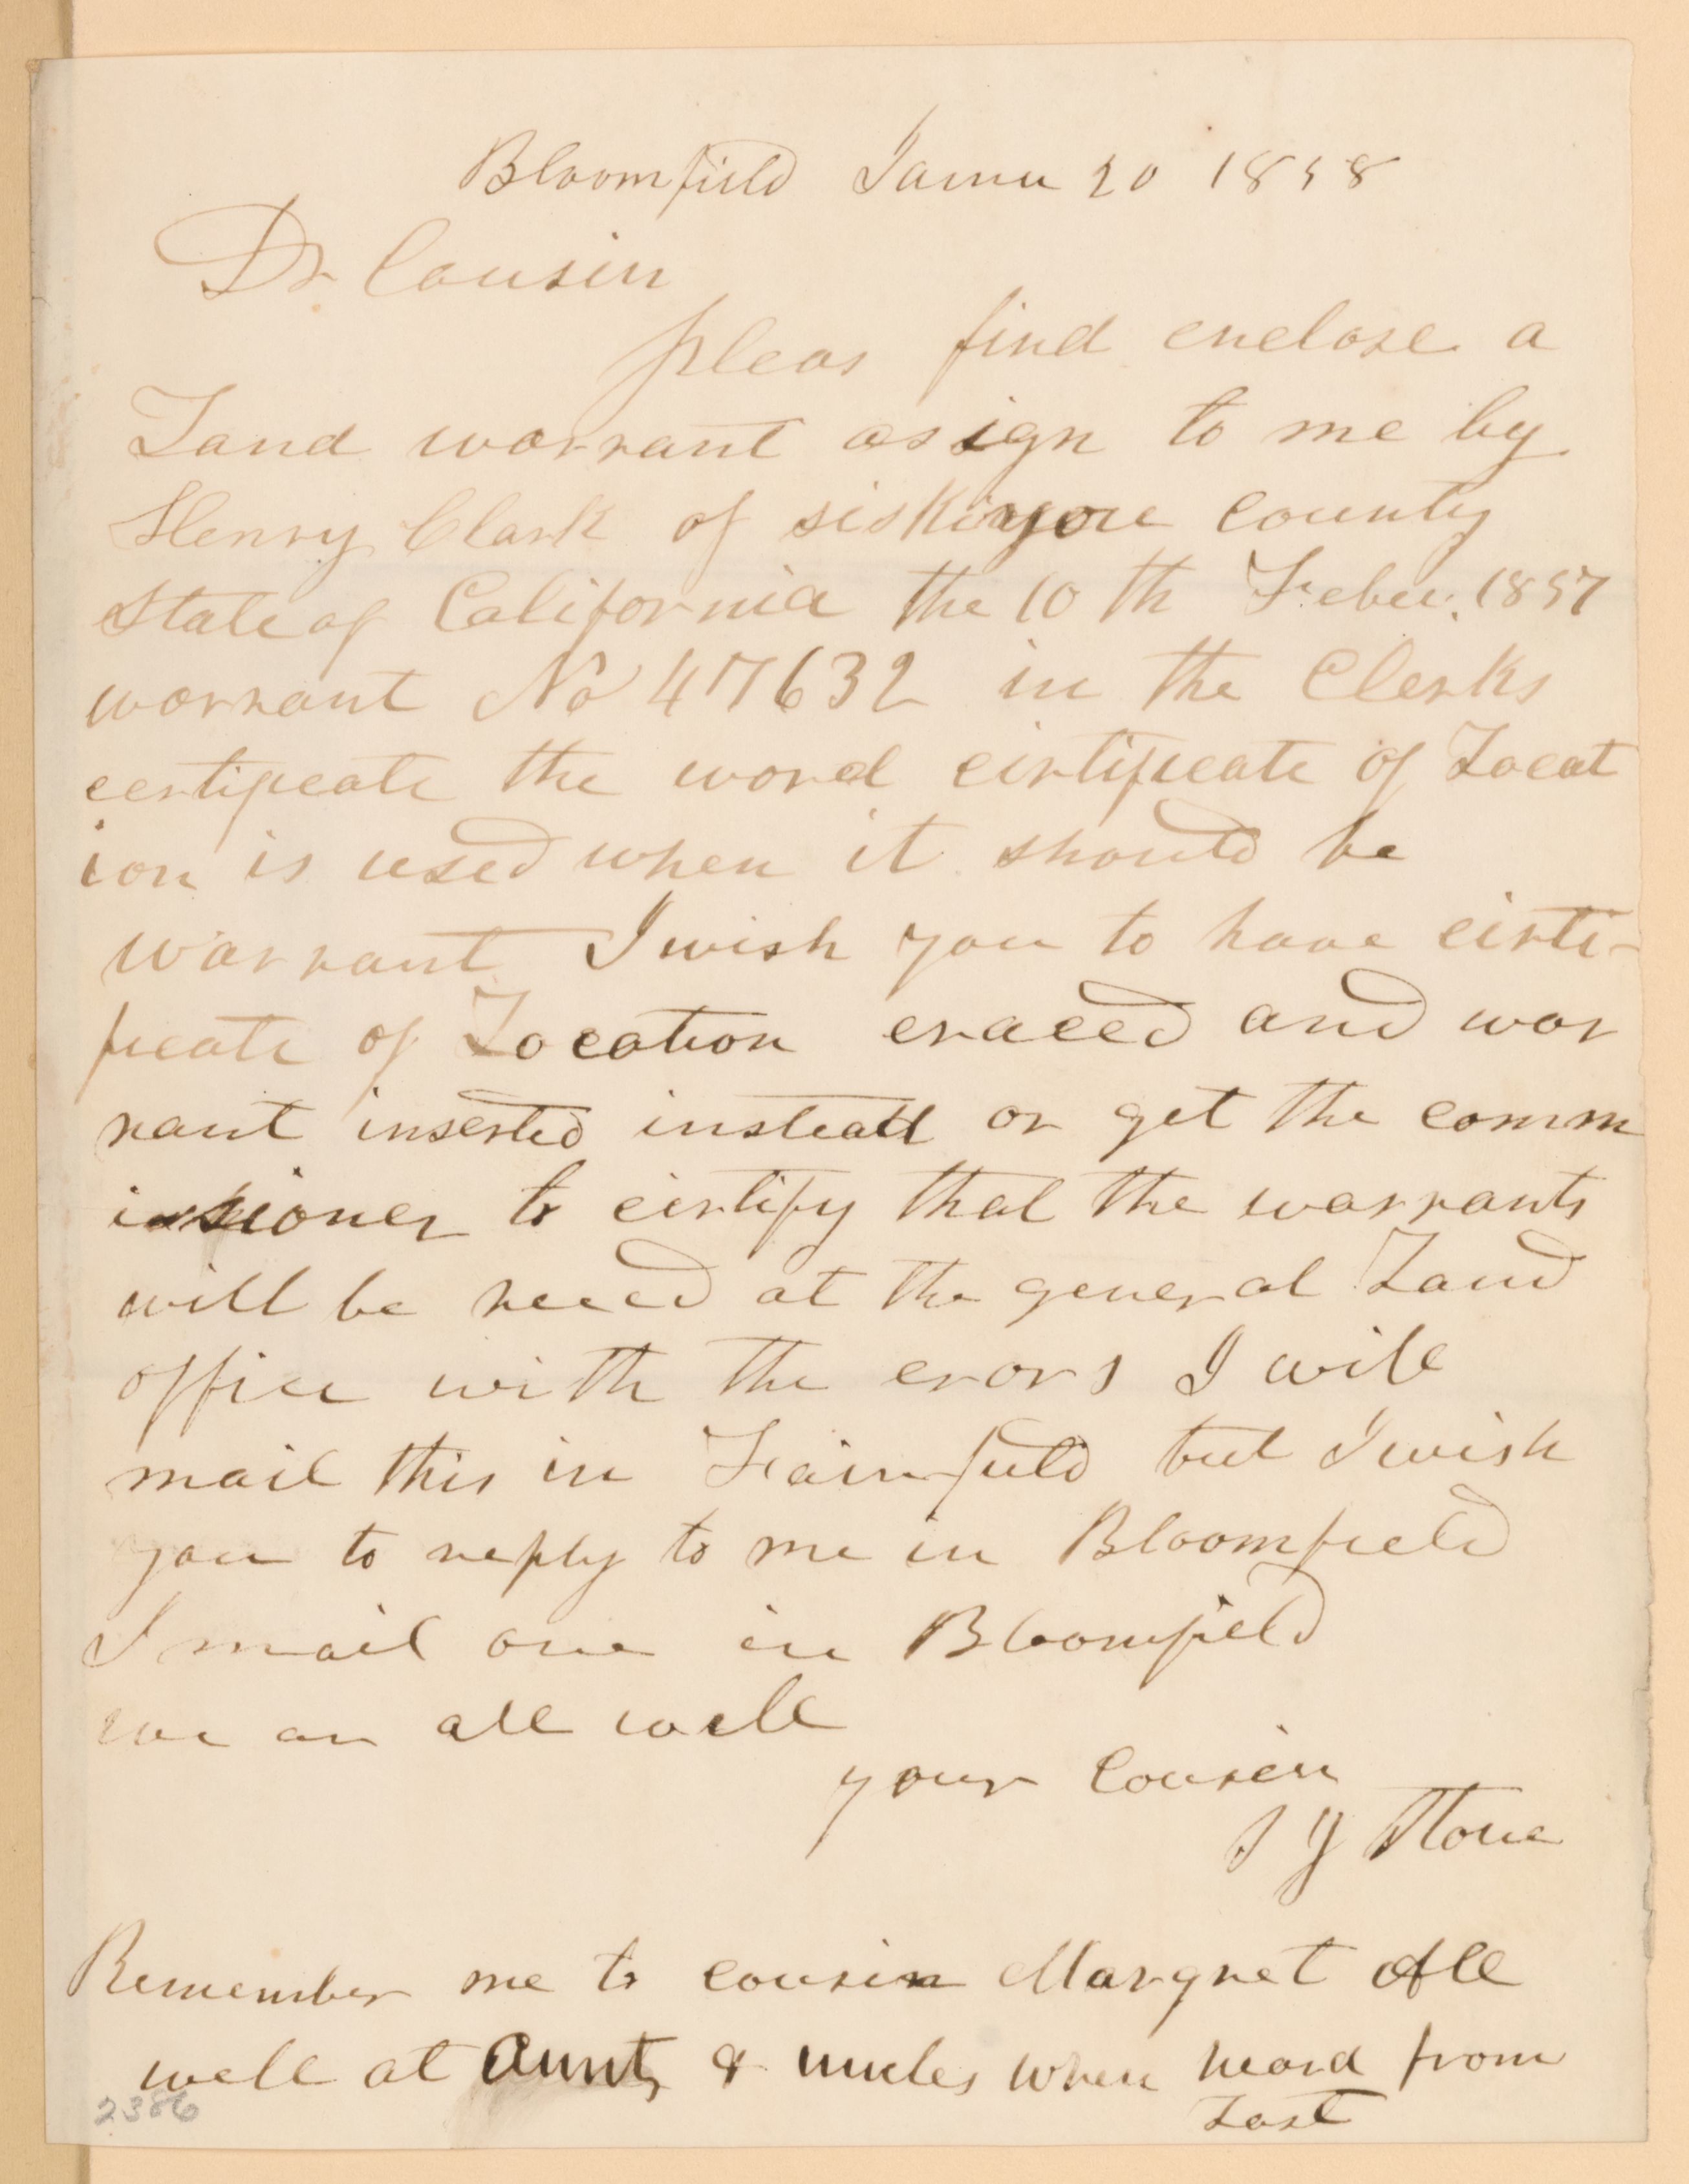 Bloomfield Janu 20 1858
Dr Cousin
pleas find enclose a
Land warrant assign to me by
Henry Clark of siskiyou county
State of California the 10 th Febu. 1857
warrant No 47632 in the Clerks
certificate the word cirtificate of Locat
ion is used when it should be
warrant I wish you to have cirti-
ficate of Location eraced and war
rant inserted instead or get the comm
issioner to cirtify that the warrants
will be receed at the general Land
office with the erors I will
mail this in Fairfield but I wish
you to reply to me in Bloomfield
I mail one in Bloomfield
we ar all well
your Cousin
J Y Stone
Remember me to cousin Margret All
well at Aunts & uncles when heard from
Last
2386